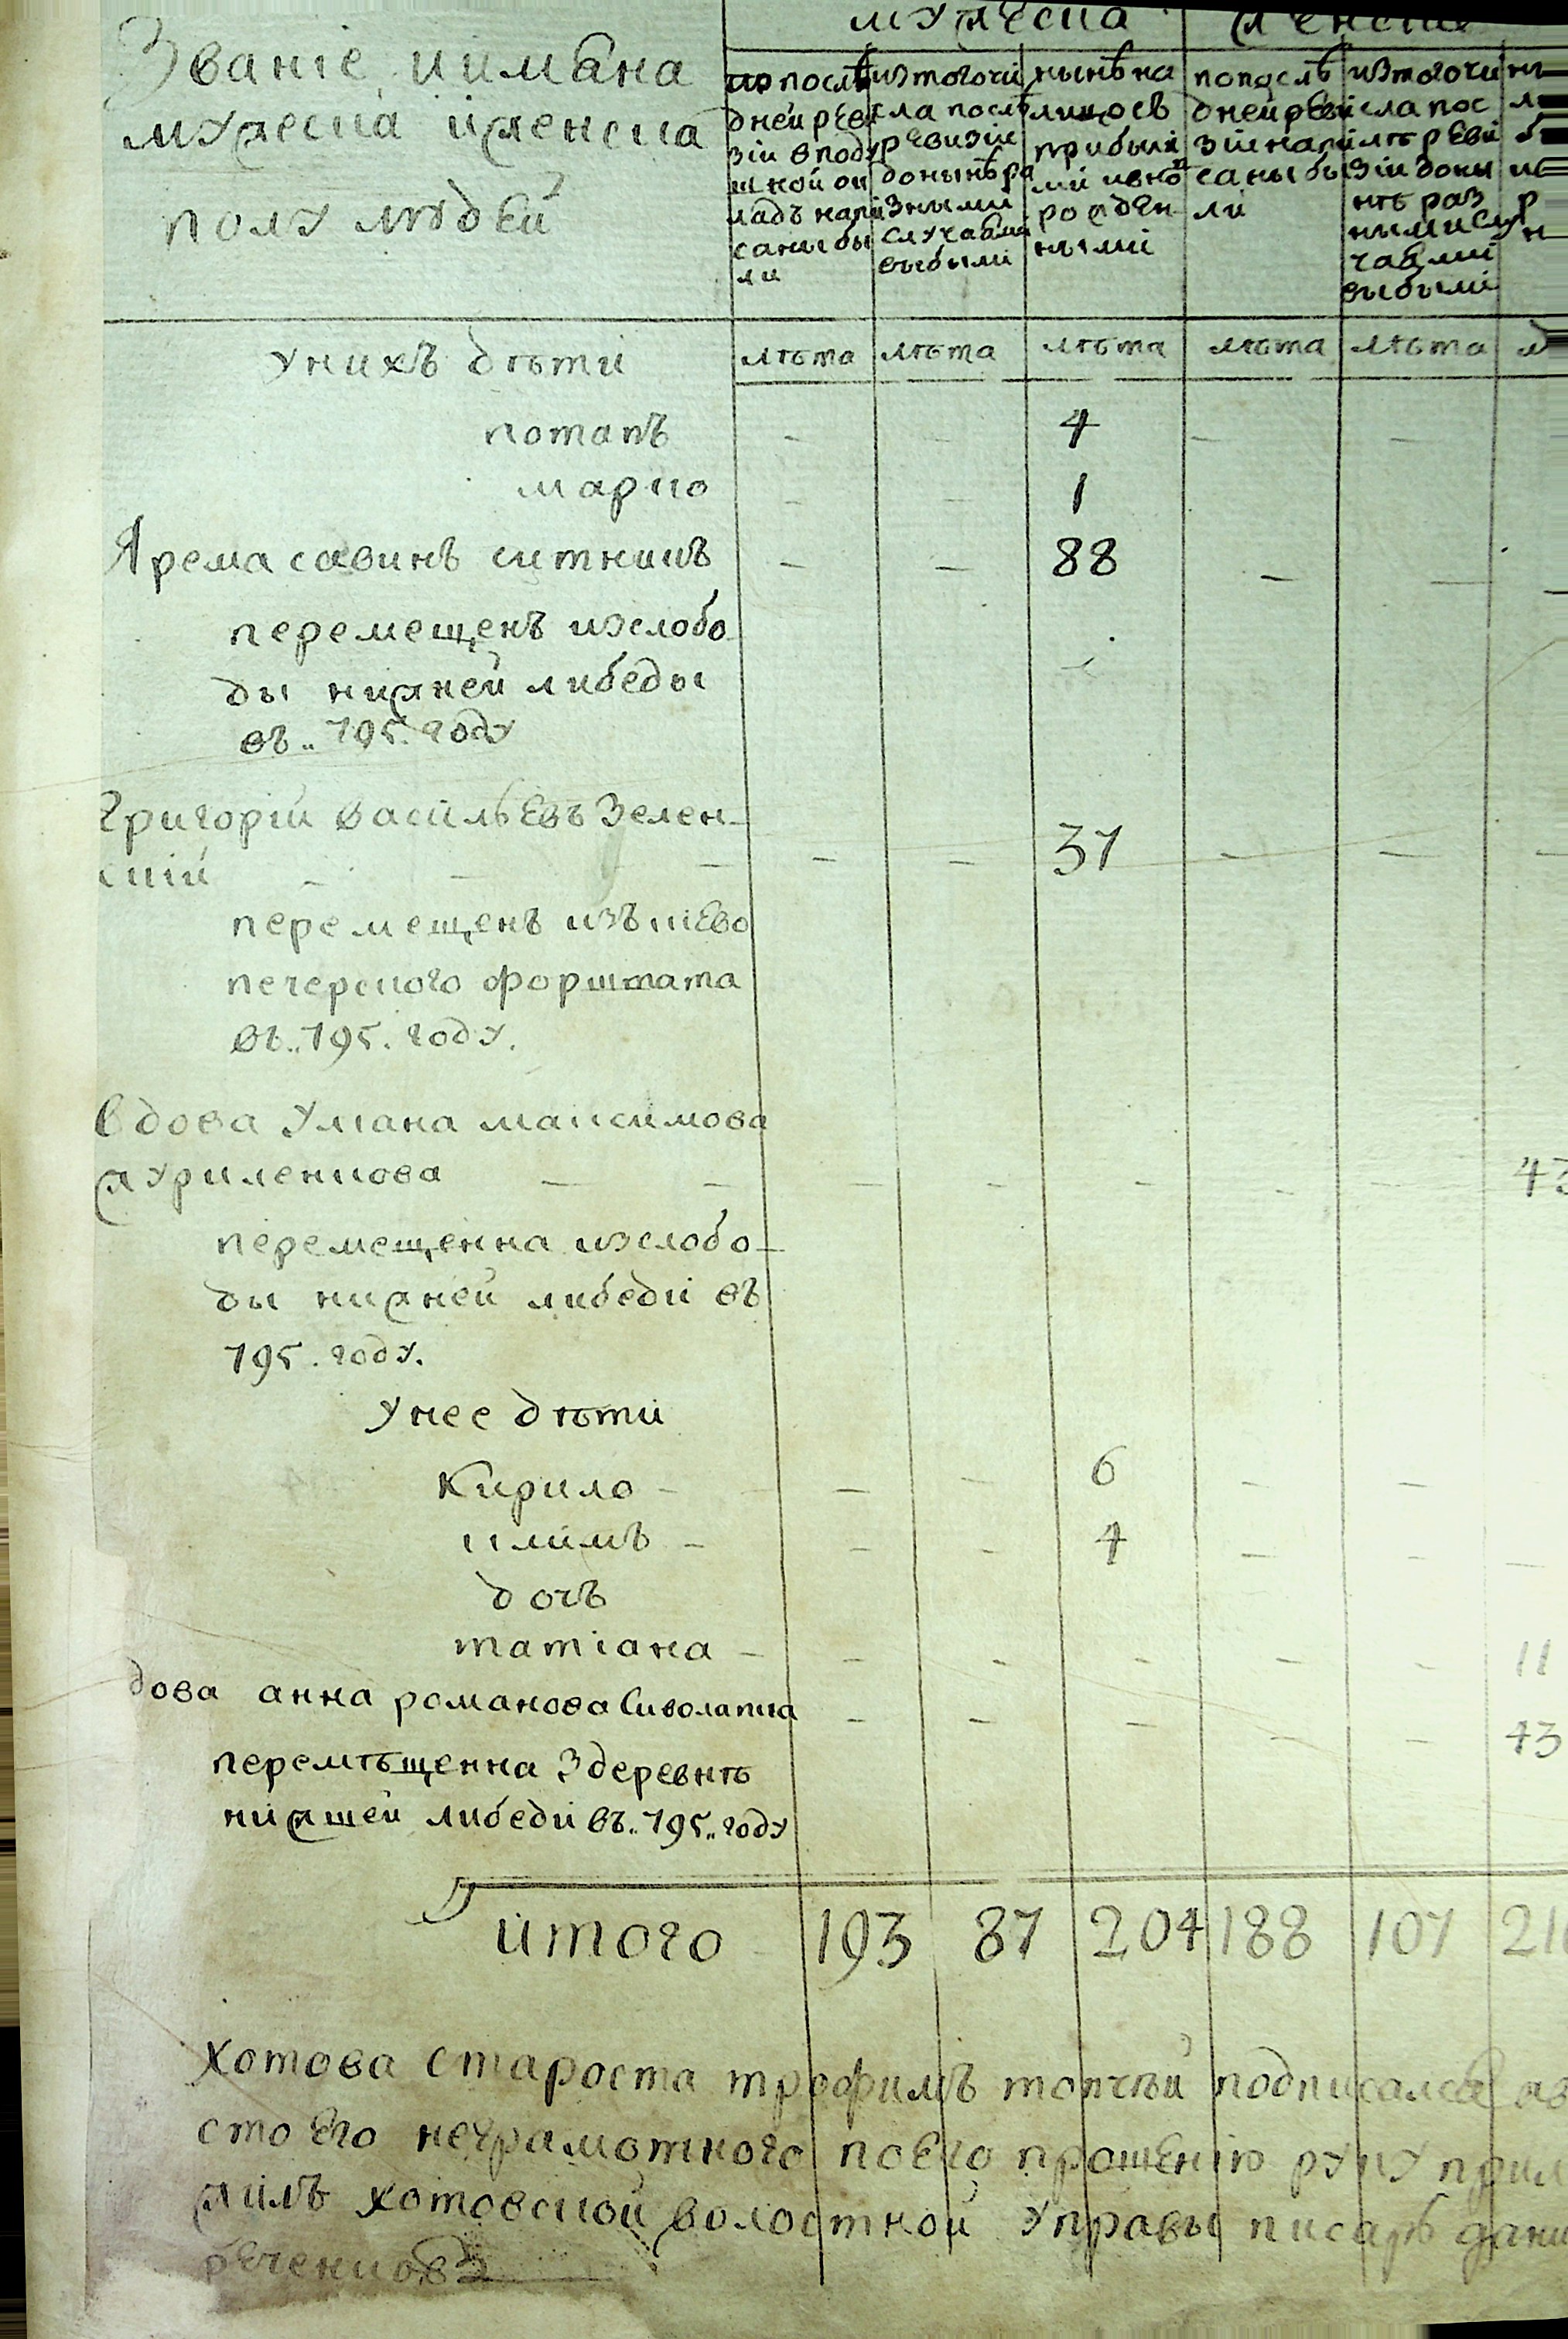 мужеска
женска
Званіе иимяна
мужеска іженска
полу людей
попослѣ
дней реви
зіи вподу
шной ок
ладъ напи
саны бы
ли
изтогочи
сла послѣ
ревизіи
донынѣ ра
зными
случаями
выбыли
нынѣ на
лицо съ
прибыли
ми ивно
рожден
ными
попослѣ
дней реви
зіи напи
саны бы
ли
изтогочи
сла пос
лѣ реви
зіи доны
нѣ раз
ными слу
чаями
выбыли
унихъ дѣти
лѣта лѣта лѣта лѣта лѣта
потапъ - - 4 - -
марко - - 1
Ярема савинъ ситникъ - - 88 - -
перемещенъ изслобо
ды нижней либеды
въ 795. году
Григорій васильевъ Зелен-
скій - - 37 - -
перемещенъ изъ кіево
печерского форштата
въ 795. году.
Вдова Уляна максимова
журиленкова - - - - - 43
перемещенна изслобо-
ды нижней либеди въ
795. году.
Унее дѣти
Кирило - - - 6 - -
климъ - - - 4 - - -
дочъ
татіана - - - - - - 11
дова анна романова Сиволапка - - - - 43
перемѣщенна Здеревнѣ
нижшей либеди въ 795 году
итого 193 87 204 188 107 21
Хотова староста трофимъ топчѣй подписался ав
сто его неграмотного поего прошенію руку прил
жилъ хотовской волостной Управы писарь дани